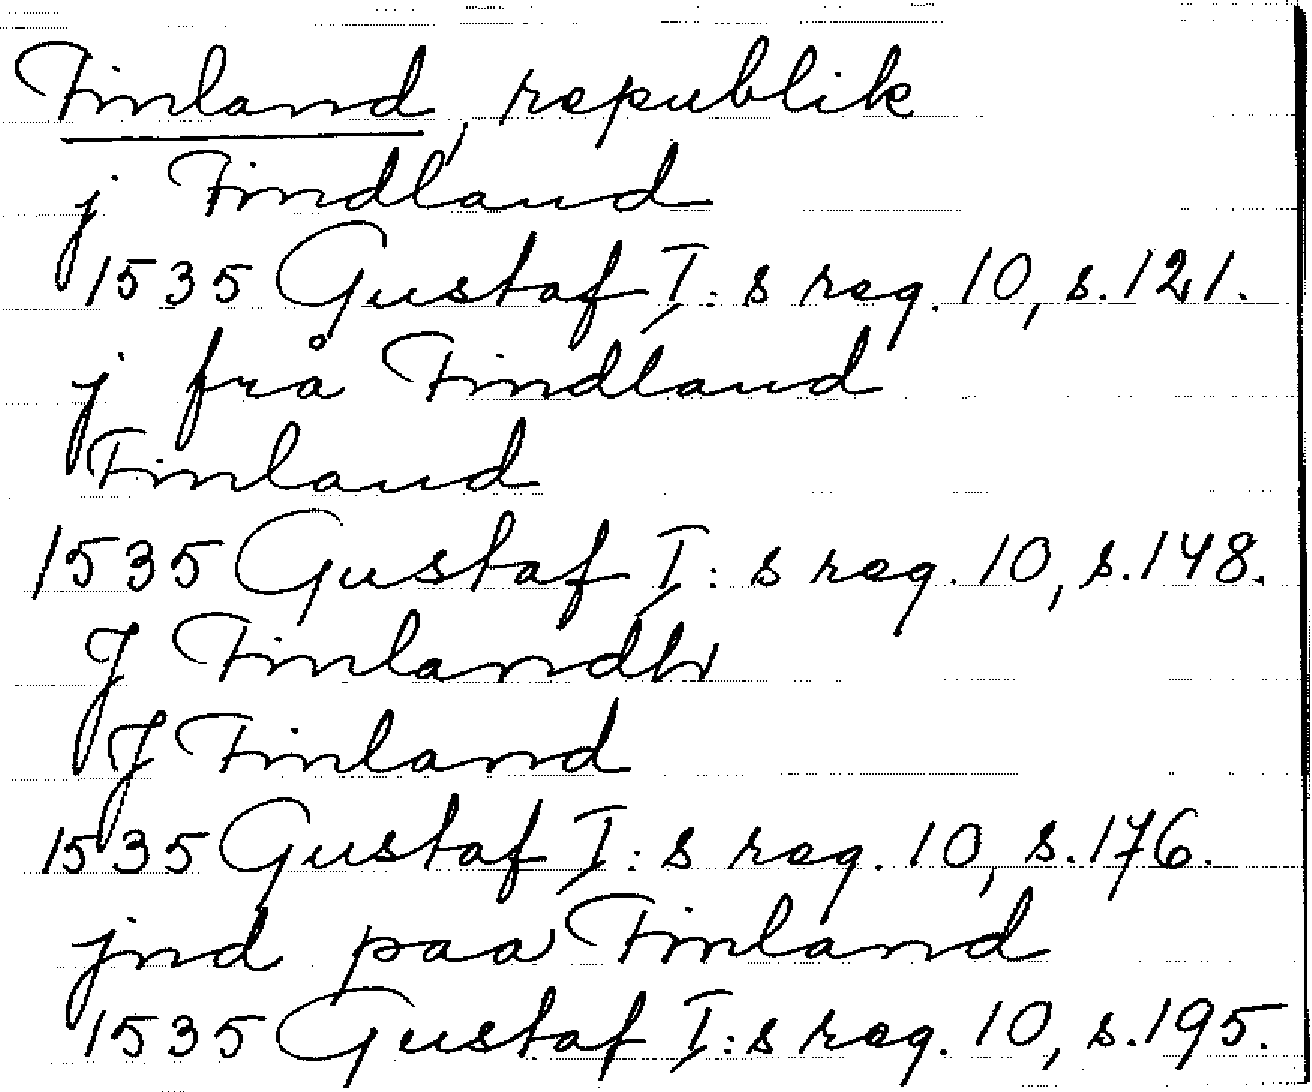 Finland, republik
j Findland
1535 Gustaf I:s reg. 10, s.121.
j frå Findland
Finland
1535 Gustaf I:s reg. 10, s.148.
J Finlandh
J Finland
1535 Gustaf I:s reg. 10, s.176.
jnd paa Finland
1535 Gustaf I:s reg. 10, s.195.